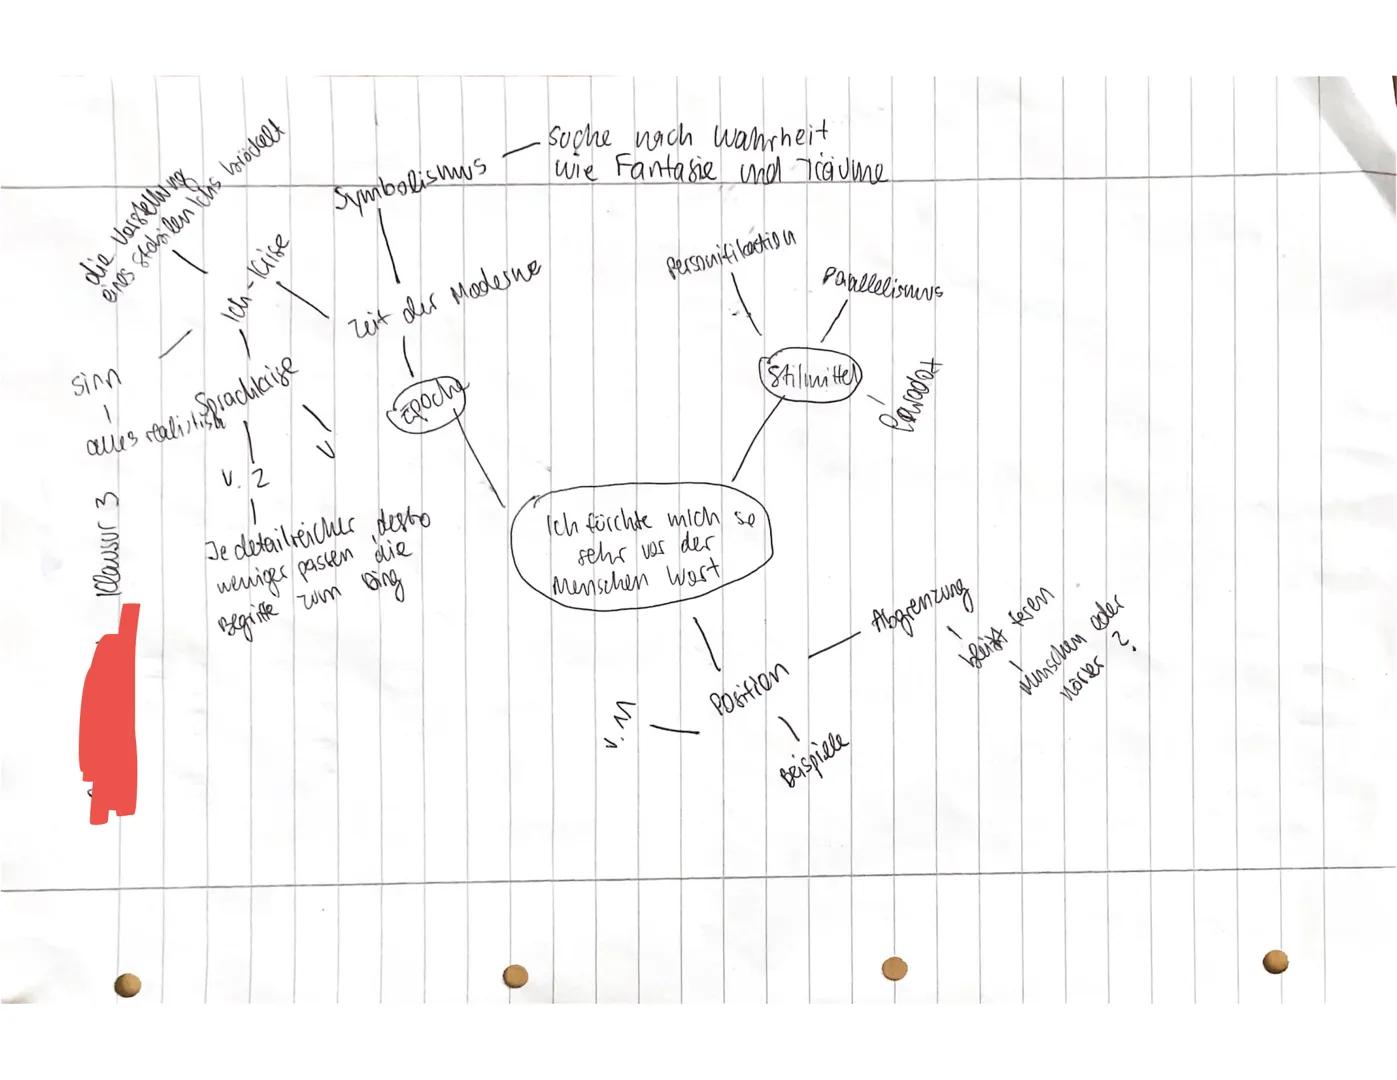 Suche nach Wahrheit
wie Fantasie und Träume
Symbolismus
die Vorstellung
eines stabilen Ichs bröckelt
Ich-Krise
Zeit der Moderne
Epoche
Sinn
alles realistisch
Sprachkrise
v. 2
v
Je detailreicher, desto
weniger passen die
Begriffe zum Ding
Personifikation
Parallelismus
Stilmittel
Paradox
Ich fürchte mich so
sehr vor der
Menschen Wort
Position
v. 11
Beispiele
Abgrenzung
Menschen oder
Klausur 3